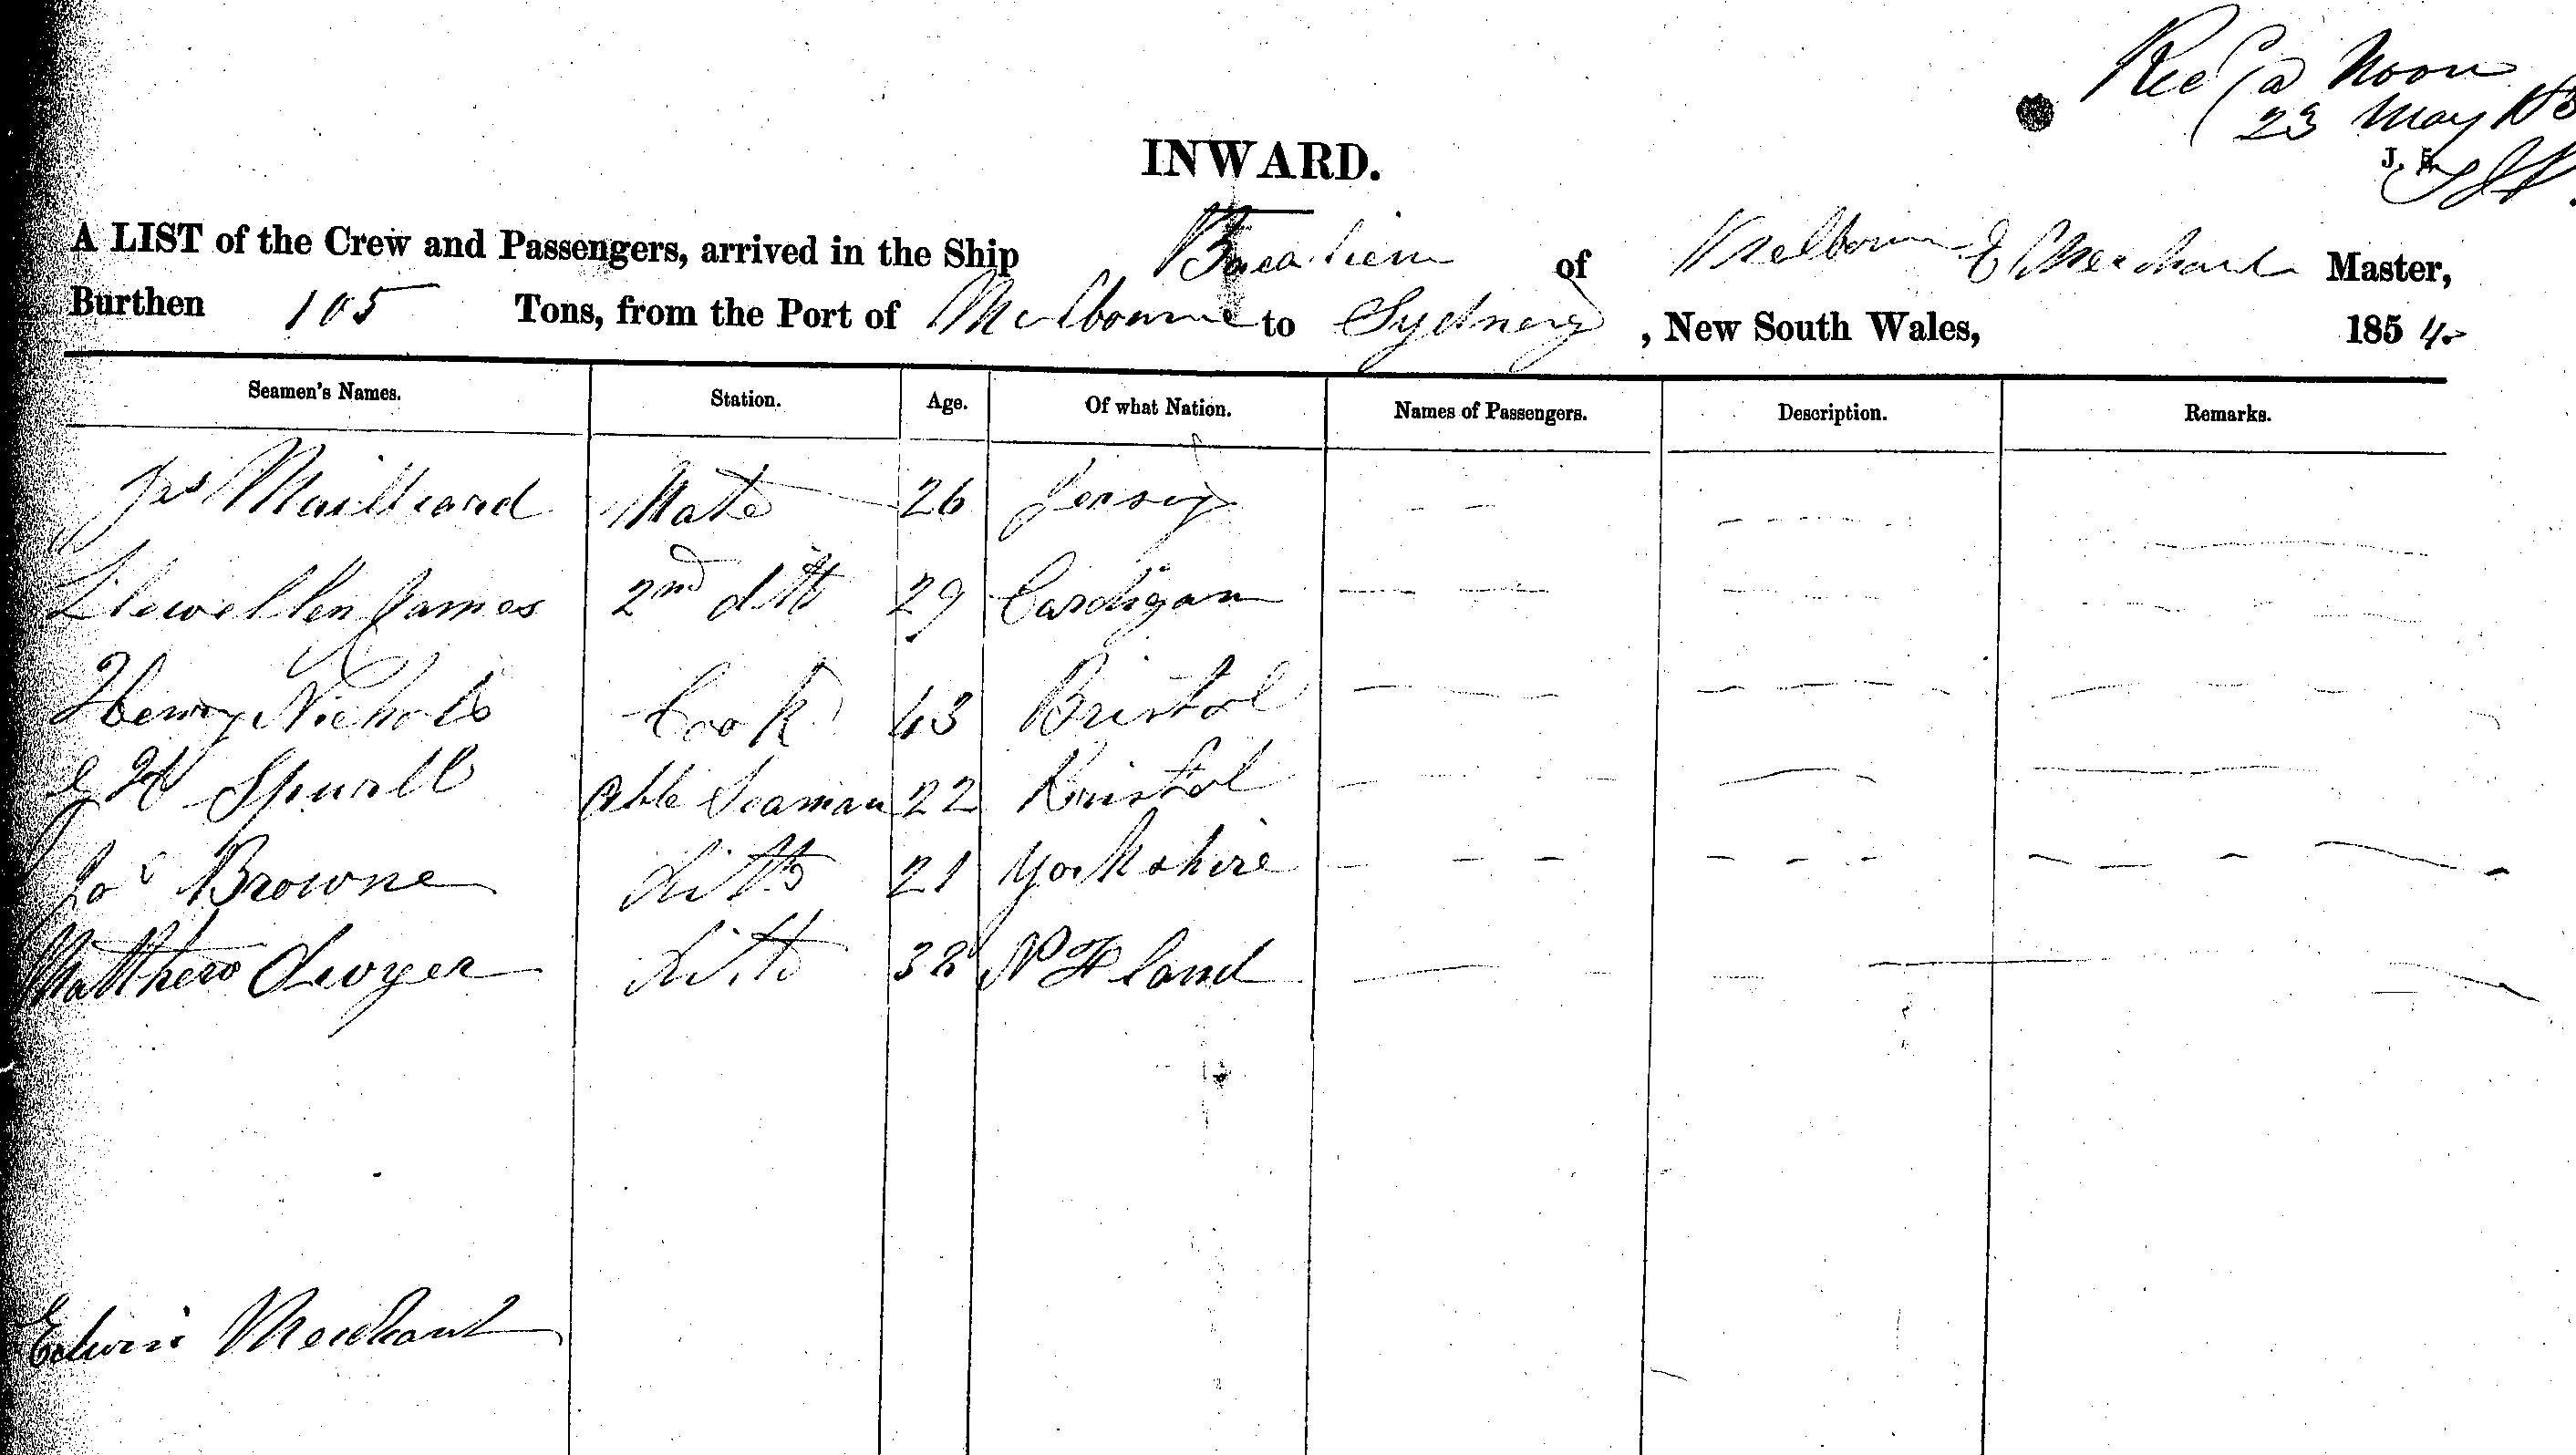 Rec'd @ Noon
23 May 185
J. E.
INWARD.
A LIST of the Crew and Passengers, arrived in the Ship of Melbourne E Merchant Master,
Burthen 105 Tons, from the Port of Melbourne to Sydney, New South Wales, 1854.
Seamen's Names. Station. Age. Of what Nation. Names of Passengers. Description. Remarks.
Jas Mailleard Mate 26 Jersey
Llewellen James 2nd ditto 29 Cardigan
Henry Nichols Cook 43 Bristol
H Spurll Able Seaman 22 Bristol
Jos Browne ditto 21 Yorkshire
Matthew Dwyer ditto 38 N F land
Edwin Merchant